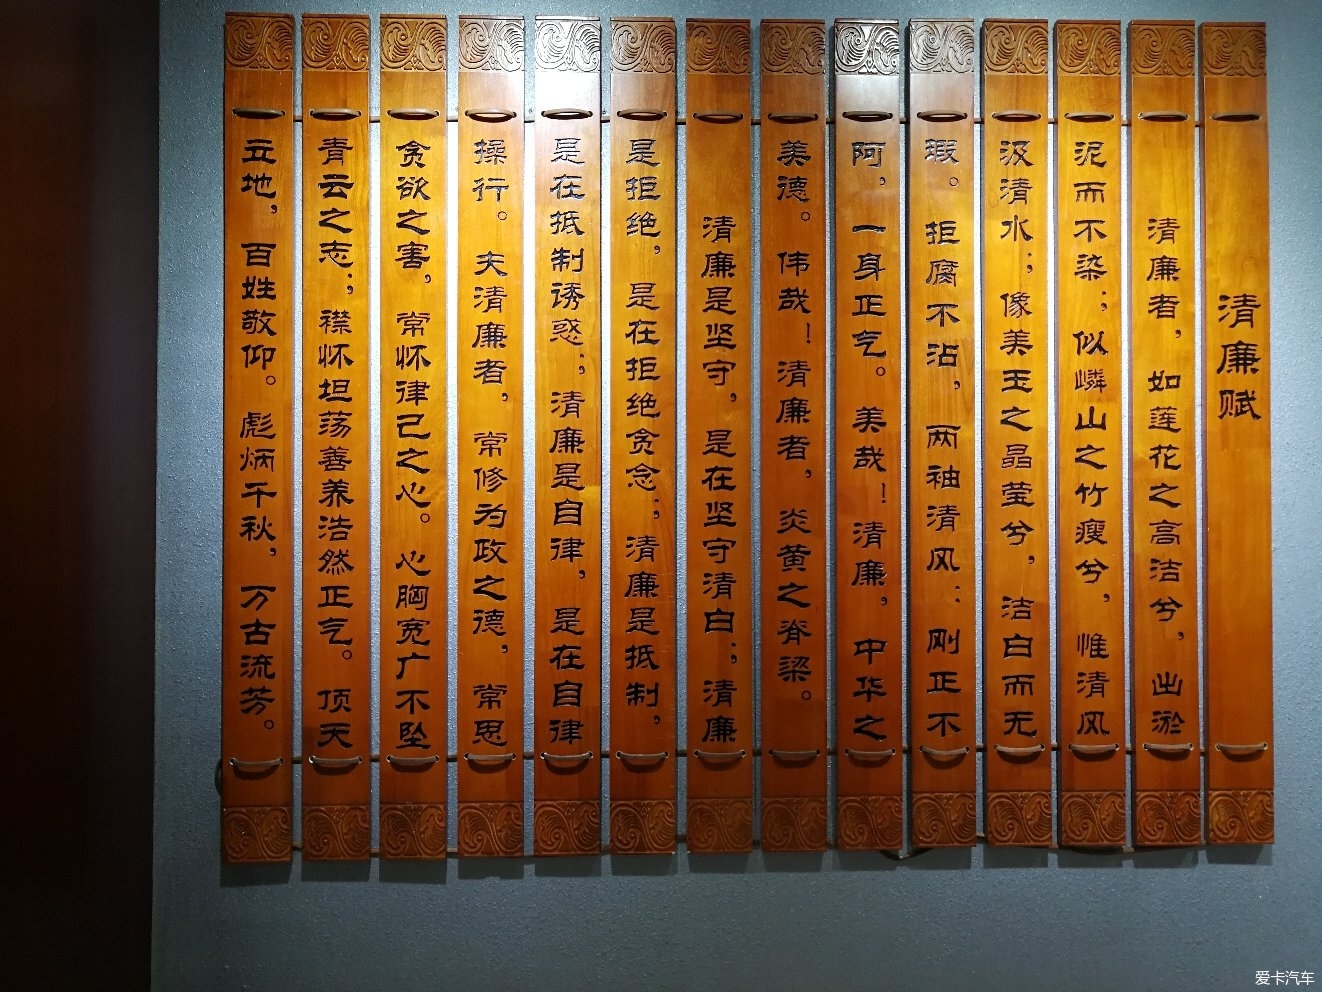 清廉赋
清廉者，如莲花之高洁兮，出淤
泥而不染；似嶙山之竹瘦兮，惟清风
汲清水；像美玉之晶莹兮，洁白而无
瑕。拒腐不沾，两袖清风：刚正不
阿，一身正气。美哉！清廉，中华之
美德。伟哉！清廉者，炎黄之脊梁。
清廉是坚守，是在坚守清白；清廉
是拒绝，是在拒绝贪念；清廉是抵制，
是在抵制诱惑；清廉是自律，是在自律
操行。夫清廉者，常修为政之德，常思
贪欲之害，常怀律己之心。心胸宽广不坠
青云之志；襟怀坦荡善养浩然正气。顶天
立地，百姓敬仰。彪炳千秋，万古流芳。
爱卡汽车